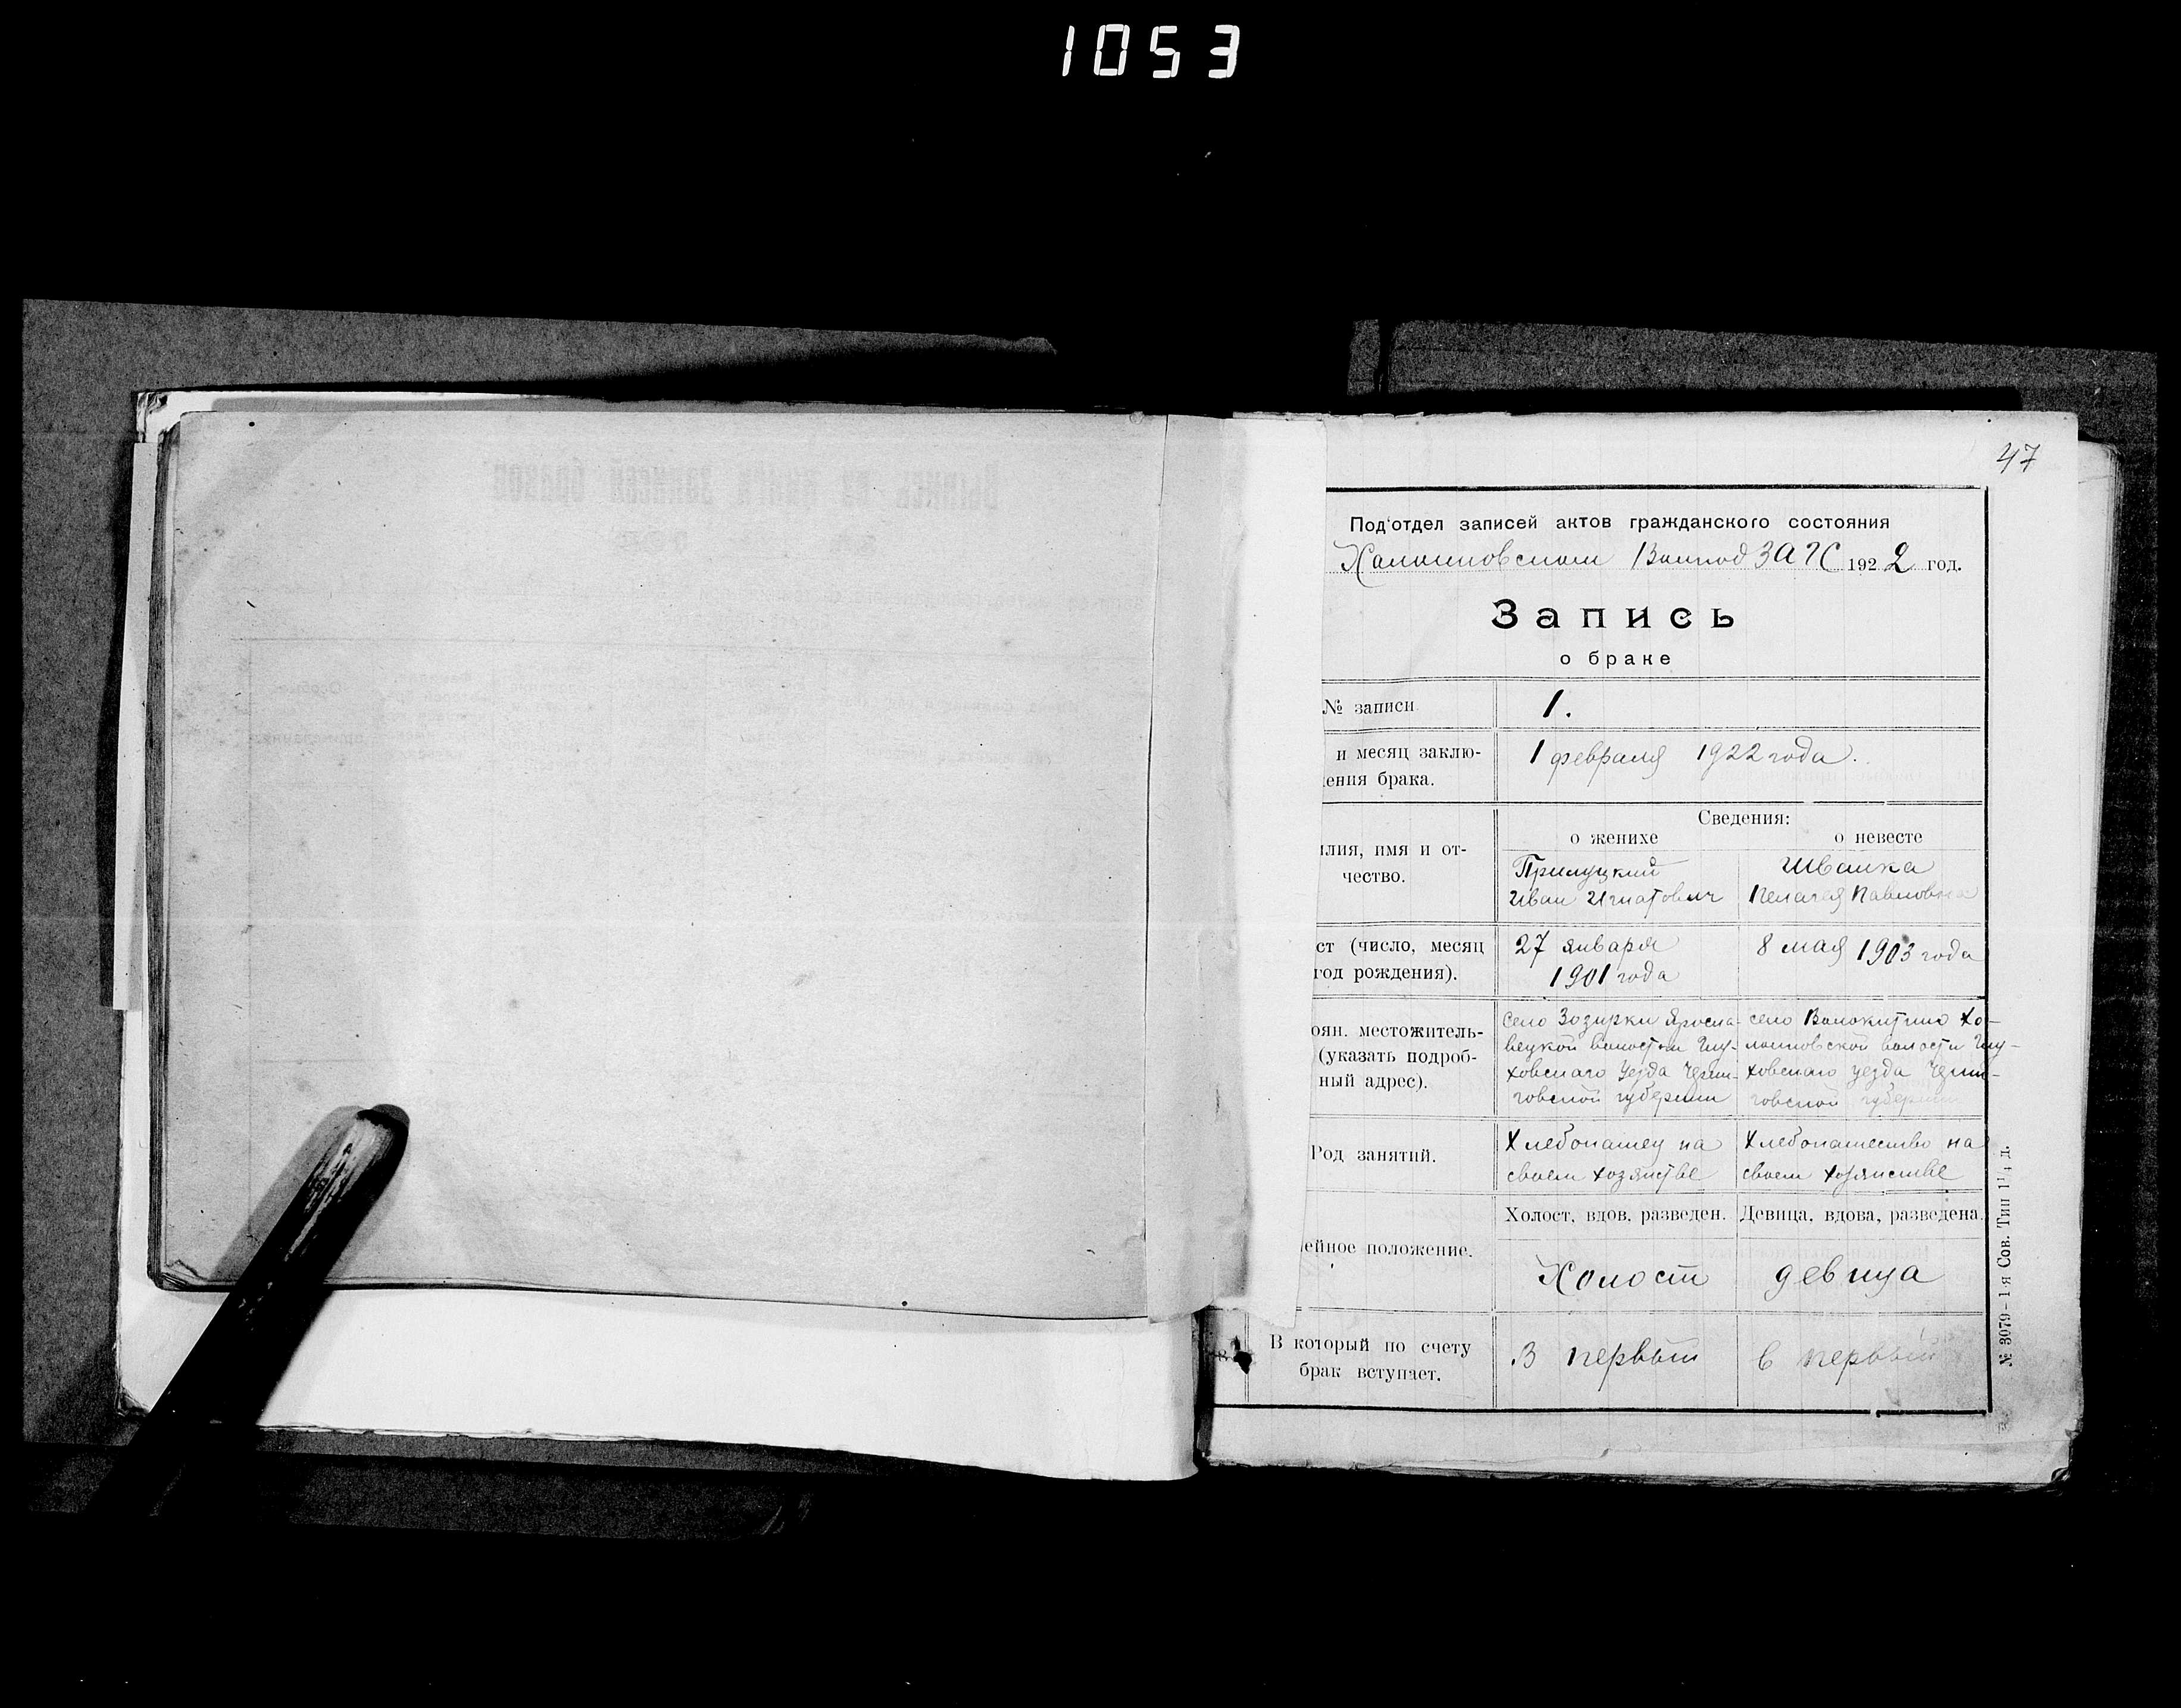 1053
47
Под'отдел записей актов гражданского состояния
Холминовском Волпод ЗАГС 1922 год.
Запись
о браке
№ записи
1.
и месяц заклю-
ения брака.
1 февраля 1922 года.
Сведения:
о женихе
о невесте
илия, имя и от-
чество.
Прилуцкий
Иван Игнатович
Швайка
Пелагея Павловна
ст (число, месяц
год рождения).
27 января
1901 года
8 мая 1903 года
оян. местожитель-
(указать подроб-
ный адрес).
село Зозирки Яросла-
вецкой волости Глу-
ховского Уезда Черни-
говской губернии
село Волокитино Хо-
лминовской волости Глу-
ховского уезда Черни-
говской губернии
Род занятий.
Хлебопашец на
своем хозяйстве
Хлебопашество на
своем хозяистве
ейное положение.
Холост, вдов, разведен.
Девица, вдова, разведена.
Холост
девица
В который по счету
брак вступает.
В первый
в первый
№ 3079-1-я Сов. Тип